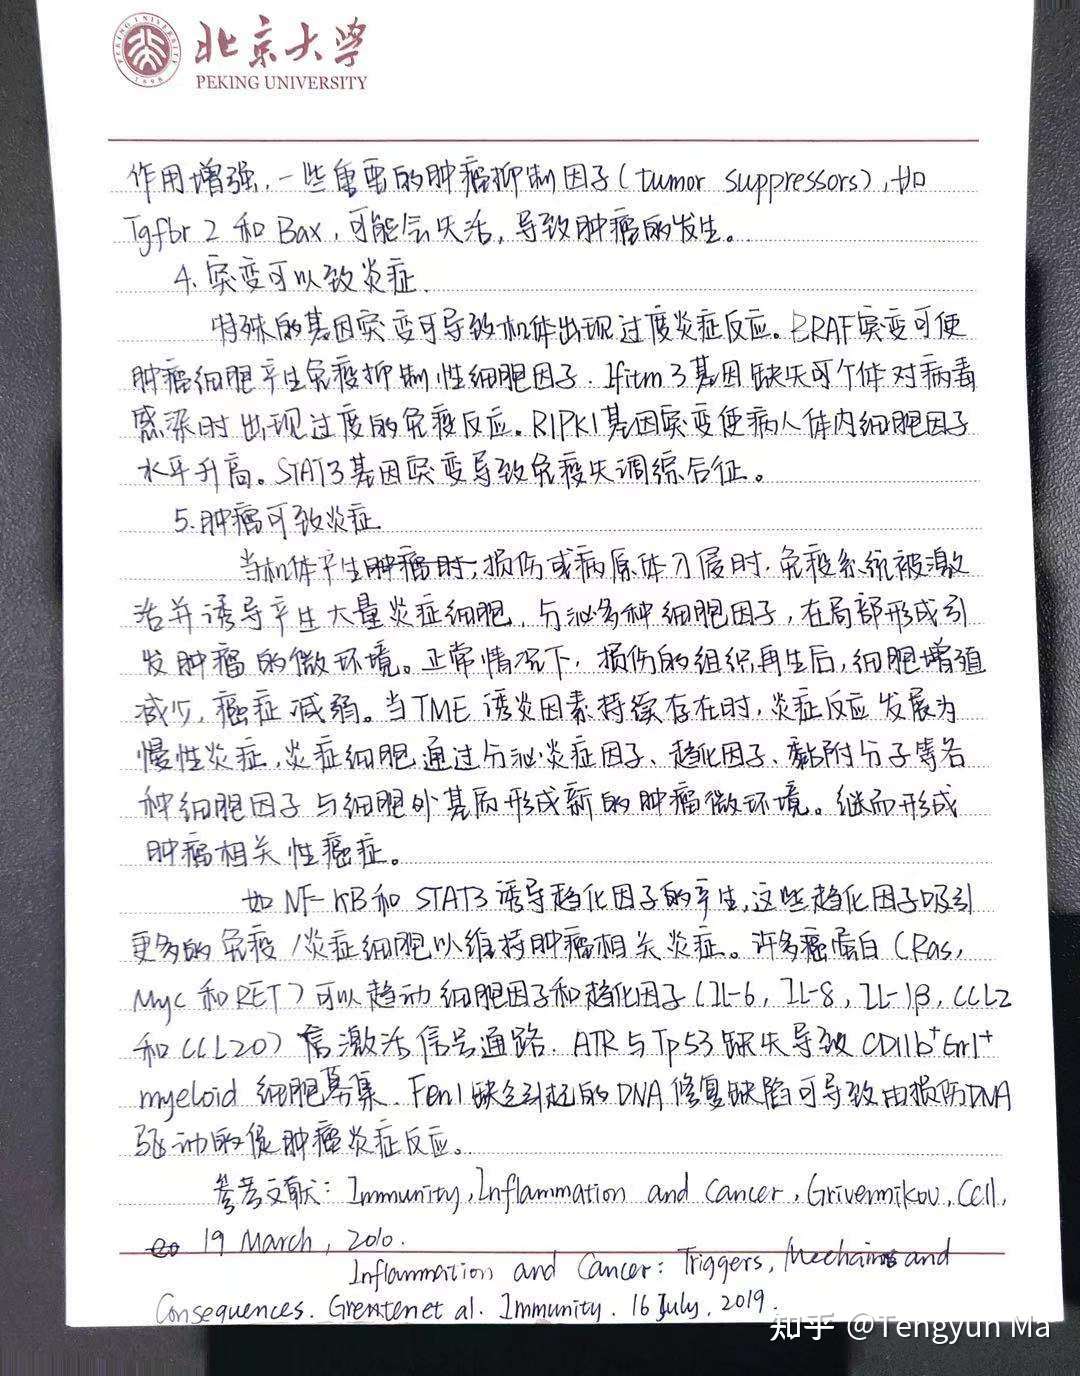 北京大学
PEKING UNIVERSITY
作用增强，一些重要的肿瘤抑制因子(tumor suppressors)，如
Tgfbr2和Bax，可能会失活，导致肿瘤的发生。
4.突变可以致炎症.
特殊的基因突变可导致机体出现过度炎症反应。BRAF突变可使
肿瘤细胞产生免疫抑制性细胞因子. Ifitm3基因缺失可个体对病毒
感染时出现过度的免疫反应。RIPK1基因突变使病人体内细胞因子
水平升高。STAT3基因突变导致免疫失调综合征。
5.肿瘤可致炎症
当机体产生肿瘤时,损伤或病原体入侵时,免疫系统被激
活并诱导产生大量炎症细胞,分泌多种细胞因子,在局部形成引
发肿瘤的微环境。正常情况下,损伤的组织再生后,细胞增殖
减少,癌症减弱。当TME诱炎因素持续存在时,炎症反应发展为
慢性炎症,炎症细胞通过分泌炎症因子、趋化因子、黏附分子等各
种细胞因子与细胞外基质形成新的肿瘤微环境。继而形成
肿瘤相关性癌症。
如NF-κB和STAT3诱导趋化因子的产生,这些趋化因子吸引
更多的免疫/炎症细胞以维持肿瘤相关炎症。许多癌蛋白(Ras,
Myc和RET)可以趋动细胞因子和趋化因子(IL-6,IL-8,IL-1β,CCL2
和CCL20)激活信号通路. ATR与Tp53缺失导致CD11b⁺Gr1⁺
myeloid细胞募集. Fen1缺乏引起的DNA修复缺陷可导致由损伤DNA
驱动的促肿瘤炎症反应。
参考文献: Immunity, Inflammation and Cancer, Grivennikov, Cell,
19 March, 2010.
Inflammation and Cancer: Triggers, Mechains and
Consequences. Greten et al. Immunity. 16 July, 2019.
知乎 @Tengyun Ma